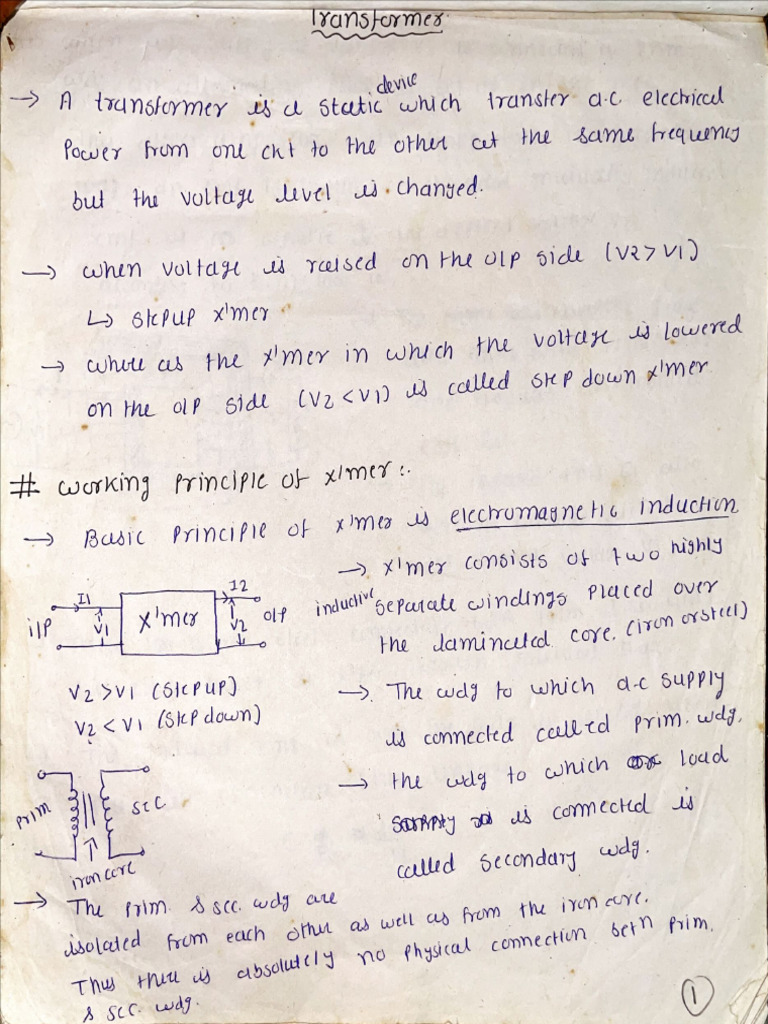 Transformer
→ A transformer is a static device which transfer a.c. electrical
Power from one ckt to the other at the same frequency
but the voltage level is changed.
→ when voltage is raised on the O/P side (V2 > V1)
↳ stepup x'mer
→ where as the x'mer in which the voltage is lowered
on the O/P side (V2 < V1) is called step down x'mer
# Working Principle of x'mer:.
→ Basic Principle of x'mer is electromagnetic induction
→ x'mer consists of two highly
inductive separate windings placed over
the laminated core. (iron or steel)
I1
I2
i/P
V1
X'mer
V2
O/P
V2 > V1 (Step up)
V2 < V1 (Step down)
→. The wdg to which a.c supply
is connected called prim. wdg.
→ the wdg to which load
is connected is
called secondary wdg.
prim
sec
iron core
→ The prim. & sec. wdg are
isolated from each other as well as from the iron core.
Thus there is absolutely no physical connection betn prim.
& sec. wdg.
1